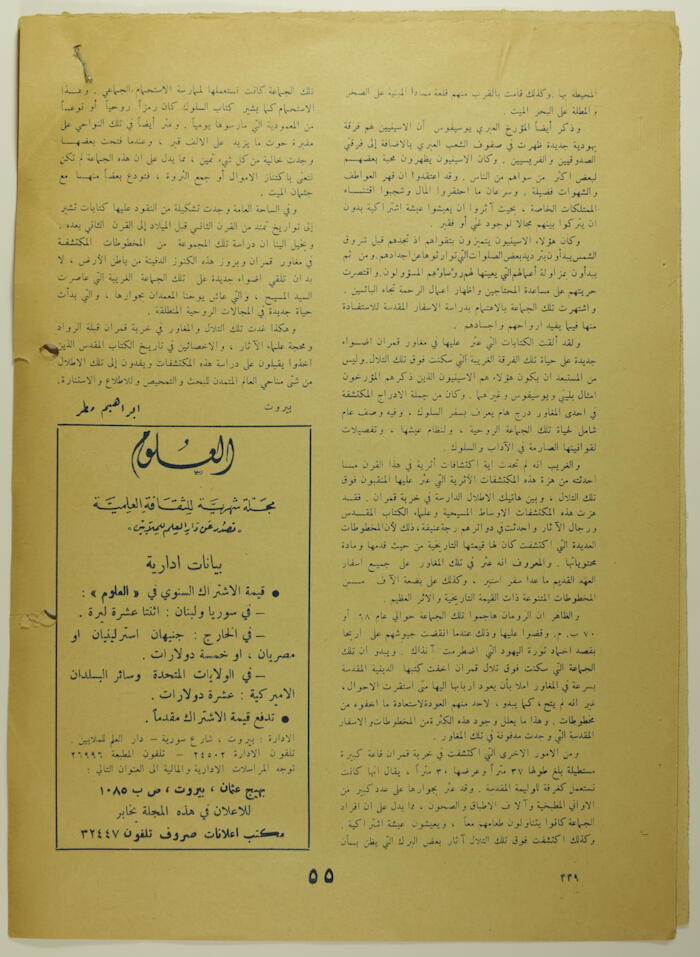 المحيطه بها . وكذلك قامت بالقرب منهم قلعة مسادا المبنية على الصخر
والمطلة على البحر الميت .
وذكر أيضاً المؤرخ العبري يوسيفوس أن الاسينيين هم فرقة
يهودية جديدة ظهرت في صفوف الشعب العبري بالاضافة إلى فرقتي
الصدوقيين والفريسيين . وكان الاسينيون يظهرون محبة بعضهم
لبعض اكثر من سواهم من الناس . وقد اعتقدوا ان قهر العواطف
والشهوات فضيلة . وسرعان ما احتقروا المال وشجبوا اقتناء
الممتلكات الخاصة ، بحيث آثروا ان يعيشوا عيشة اشتراكية بدون
ان يتركوا بينهم مجالا لوجود غني أو فقير .
وكان هؤلاء الاسينيون يتميزون بتقواهم اذ تجدهم قبل شروق
الشمس يبدأون بترديد بعض الصلوات التي توارثوها عن اجدادهم . ومن ثم
يبدأون بمزاولة أعمالهم التي يعينها لهم رؤساؤهم المسؤولون . واقتصرت
حريتهم على مساعدة المحتاجين واظهار اعمال الرحمة تجاه البائسين .
واشتهرت تلك الجماعة بالاهتمام بدراسة الاسفار المقدسة للاستفادة
منها فيما يفيد ارواحهم واجسادهم .
ولقد ألقت الكتابات التي عثر عليها في مغاور قمران اضواء
جديدة على حياة تلك الفرقة الغريبة التي سكنت فوق تلك التلال . وليس
من المستبعد ان يكون هؤلاء هم الاسينيون الذين ذكرهم المؤرخون
امثال بليني ويوسيفوس وغيرهما . وكان من جملة الادراج المكتشفة
في احدى المغاور درج هام يعرف بسفر السلوك ، وفيه وصف عام
شامل لحياة تلك الجماعة الروحية ، ولنظام عيشها ، وتفصيلات
لقوانينها الصارمة في الآداب والسلوك .
والغريب انه لم تحدث اية اكتشافات أثرية في هذا القرن مسا
احدثته من هزة هذه المكتشفات الأثرية التي عثر عليها المنقبون فوق
تلك التلال ، وبين هاتيك الاطلال الدارسة في خربة قمران . فقد
هزت هذه المكتشفات الاوساط المسيحية وعلماء الكتاب المقدس
ورجال الآثار واحدثت في دوائرهم رجة عنيفة ، ذلك لأن المخطوطات
العديدة التي اكتشفت كان لها قيمتها التاريخية من حيث قدمها ومادة
محتوياتها . والمعروف انه عثر في تلك المغاور على جميع اسفار
العهد القديم ما عدا سفر استير . وكذلك على بضعة آلاف مسس
المخطوطات المتنوعة ذات القيمة التاريخية والاثر العظيم .
والظاهر ان الرومان هاجموا تلك الجماعة حوالي عام ٦٨ أو
٧٠ ب . م . وقضوا عليها وذلك عندما انقضت جيوشهم على اريحا
بقصد اخماد ثورة اليهود التي اضطرمت آنذاك . ويبدو أن تلك
الجماعة التي سكنت فوق تلال قمران اخفت كتبها الدينية المقدسة
بسرعة في المغاور املا بأن يعود اربابها اليها متى استقرت الاحوال ،
غير انه لم يتح ، كما يبدو ، لاحد منهم العودة لاستعادة ما اخفوه من
مخطوطات . وهذا ما يعلل وجود هذه الكثرة من المخطوطات والاسفار
المقدسة التي وجدت مدفونة في تلك المغاور .
ومن الامور الاخرى التي اكتشفت في خربة قمران قاعة كبيرة
مستطيلة بلغ طولها ٣٧ متراً وعرضها ٣٠ متراً ، يقال انها كانت
تستعمل كغرفة للوليمة المقدسة . وقد عثر بجوارها على عدد كبير من
الاواني المطبخية وآلاف الاطباق والصحون ، مما يدل على ان افراد
الجماعة كانوا يتناولون طعامهم معاً ، ويعيشون عيشة اشتراكية .
وكذلك اكتشفت فوق تلك التلال آثار بعض البرك التي يظن بسأن
تلك الجماعة كانت تستعملها لممارسة الاستحمام الجماعي . وهذا
الاستحمام كما يشير كتاب السلوك كان رمزاً روحياً أو نوعاً
من المعمودية التي مارسوها يومياً . وعثر أيضاً في تلك النواحي على
مقبرة حوت ما يزيد على الالف قبر ، وعندما فتحت بعضها
وجدت خالية من كل شيء ثمين ، مما يدل على ان هذه الجماعة لم تكن
تعنى باكتناز الاموال أو جمع الثروة ، فتودع بعضاً منها مع
جثمان الميت .
وفي الساحة العامة وجدت تشكيلة من النقود عليها كتابات تشير
إلى تواريخ تمتد من القرن الثاني قبل الميلاد إلى القرن الثاني بعده .
ويخيل الينا ان دراسة تلك المجموعة من المخطوطات المكتشفة
في مغاور قمران وبروز هذه الكنوز الدفينة من باطن الأرض ، لا
بد ان تلقي اضواء جديدة على تلك الجماعة الغريبة التي عاصرت
السيد المسيح ، والتي عاش يوحنا المعمدان بجوارها ، والتي بدأت
حياة جديدة في المجالات الروحية المتطلقة .
وهكذا غدت تلك التلال والمغاور في خربة قمران قبلة الرواد
ومحجة علماء الآثار ، والاخصائين في تاريخ الكتاب المقدس الذين
اخذوا يقبلون على دراسة هذه المكتشفات ويفدون إلى تلك الاطلال
من شتى مناحي العالم المتمدن للبحث والتمحيص وللاطلاع والاستنارة .
بيروت ابراهيم مطر
العلوم
مجلة شهرية للثقافة العلمية
« تصدر عن دار العلم للملايين »
بيانات ادارية
● قيمة الاشتراك السنوي في « العلوم » :
– في سوريا ولبنان : اثنتا عشرة ليرة .
– في الخارج : جنيهان استرلينيان او
مصريان ، او خمسة دولارات .
– في الولايات المتحدة وسائر البلدان
الاميركية : عشرة دولارات .
● تدفع قيمة الاشتراك مقدماً .
الادارة : بيروت ، شارع سورية – دار العلم للملايين .
تلفون الادارة ٢٤٥٠٢ – تلفون المطبعة ٢٦٩٩٦
توجه المراسلات الادارية والمالية الى العنوان التالي :
بهيج عثمان ، بيروت ، ص ب ١٠٨٥
للاعلان في هذه المجلة يخابر
مكتب اعلانات صروف تلفون ٣٢٤٤٧
٥٥
٣٣٩